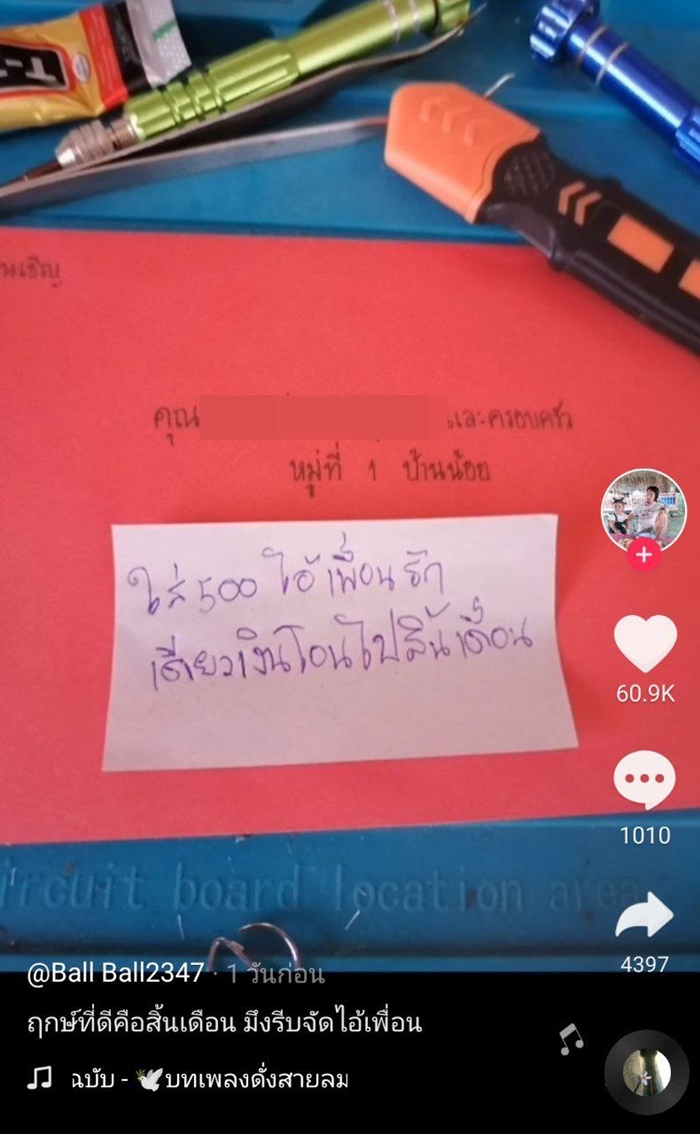 นเชิญ
คุณ
และครอบครัว
หมู่ที่ 1 บ้านน้อย
ใส่ 500 ไอ้เพื่อนรัก
เดี๋ยวเงินโอนไปสิ้นเดือน
ircuit board location area
60.9K
1010
4397
@Ball Ball2347 · 1 วันก่อน
ฤกษ์ที่ดีคือสิ้นเดือน มึงรีบจัดไอ้เพื่อน
ฉบับ - 🕊️บทเพลงดังสายลม